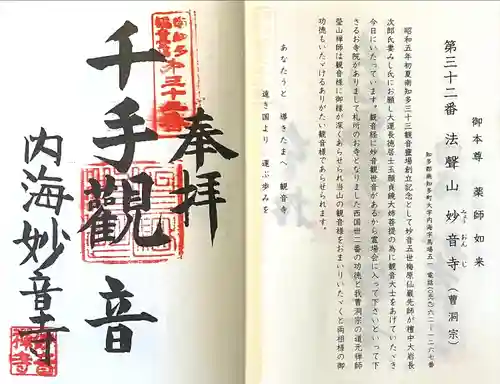 第三十二番 法聲山 妙音寺（曹洞宗）
みょうおんじ
御本尊 薬師如来
知多郡南知多町大字内海字馬場五一 電話(〇五六九)六二―一二六七番
昭和五年初夏南知多三十三観音霊場創立記念として妙音五世梅原仙巌先師が檀中大岩長
次郎氏妻みし氏にお願し大運長徳居士玉願貞鏡大姉菩提の為に観音大士をあげていたゞき
今日にいたっています。観音経に妙音観世音があるから霊場会に入って下さいといって下
さるお寺院がありまして札所のお寺となりました西国世二番の功徳と我曹洞宗の道元禅師
瑩山禅師は観音様に御縁が深くあらせられ当山の観音様をおまいりいたゞくと両祖様の御
功徳もいたゞけるありがたい観音様であらせられます。
あなたうと 導きたまへ 観音寺
遠き国より 運ぶ歩みを
奉拝
千手觀音
内海妙音寺
第三十二番